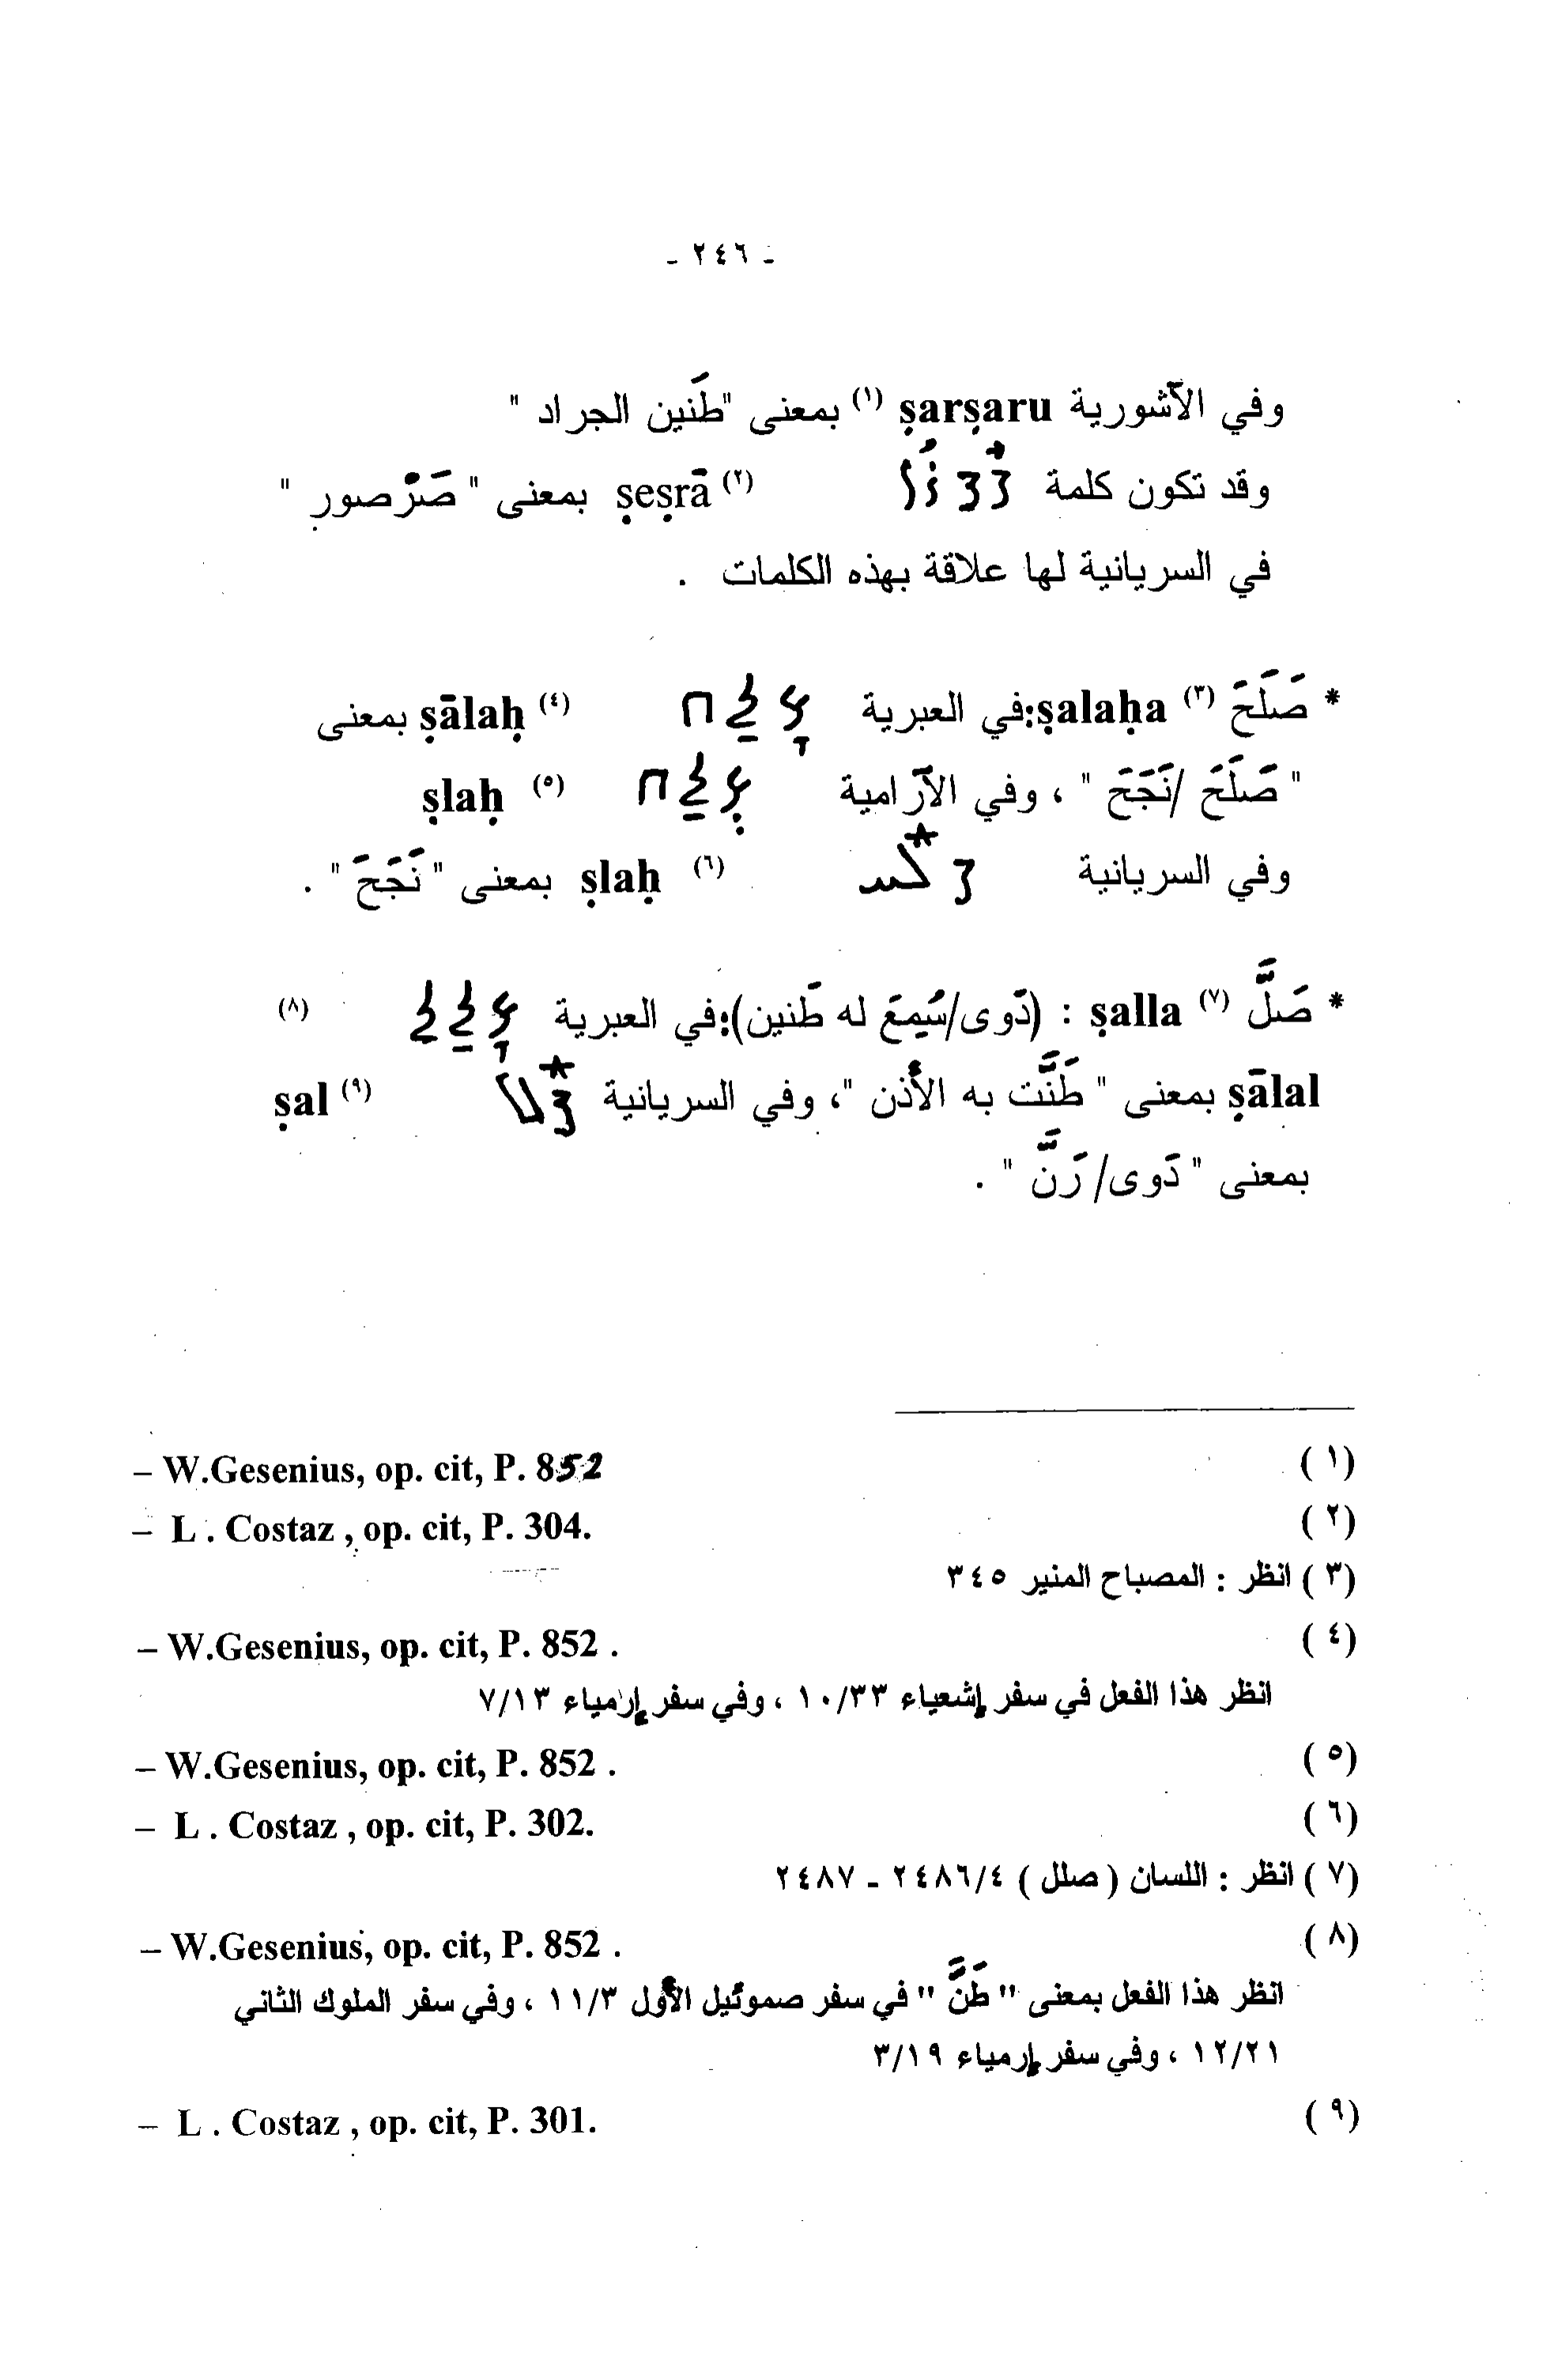 - ٢٤٦ -
وفي الآشورية ṣarṣaru (١) بمعنى "طَنين الجراد "
وقد تكون كلمة ܨܨܪܐ ṣeṣrā (٢) بمعنى " صَرْصور "
في السريانية لها علاقة بهذه الكلمات .
* صَلَحَ (٣) ṣalaḥa:في العبرية צָלַח ṣālaḥ (٤) بمعنى
" صَلَحَ /نَجَحَ " ، وفي الآرامية צְלַח ṣlaḥ (٥)
وفي السريانية ܨܠܚ ṣlaḥ (٦) بمعنى " نَجَحَ " .
* صَلَّ (٧) ṣalla : (دَوى/سُمِعَ له طَنين):في العبرية צָלַל (٨)
ṣālal بمعنى " طَنَّت به الأُذن "، وفي السريانية ܨܠ ṣal (٩)
بمعنى " دَوى/ رَنَّ " .
(١) – W.Gesenius, op. cit, P. 852
(٢) – L . Costaz , op. cit, P. 304.
(٣) انظر : المصباح المنير ٣٤٥
(٤) – W.Gesenius, op. cit, P. 852 .
انظر هذا الفعل في سفر إشعياء ١٠/٣٣ ، وفي سفر إرمياء ٧/١٣
(٥) – W.Gesenius, op. cit, P. 852 .
(٦) – L . Costaz , op. cit, P. 302.
(٧) انظر : اللسان ( صلل ) ٢٤٨٦/٤ - ٢٤٨٧
(٨) – W.Gesenius, op. cit, P. 852 .
انظر هذا الفعل بمعنى " طَنَّ " في سفر صموئيل الأول ١١/٣ ، وفي سفر الملوك الثاني
١٢/٢١ ، وفي سفر إرمياء ٣/١٩
(٩) – L . Costaz , op. cit, P. 301.